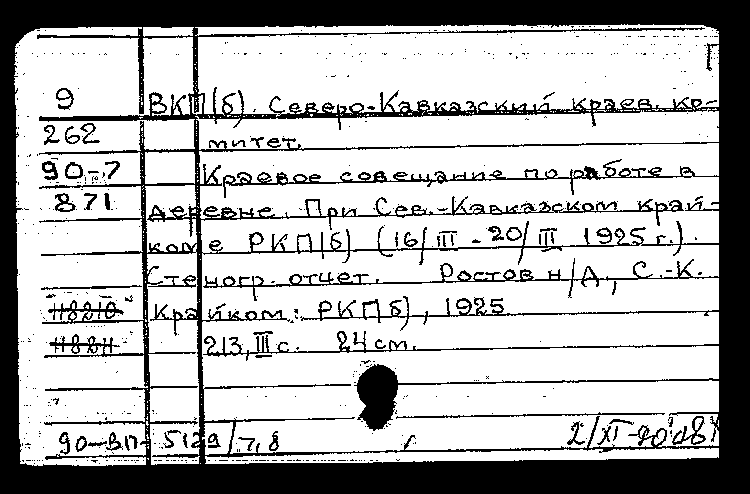 9 ВКП(б). Северо-Кавказский краев. ко-
262 митет.
90-7 Краевое совещание по работе в
871 деревне. При Сев.-Кавказском край-
коме РКП(б) (16/III - 20/III 1925 г.).
Стеногр. отчет. Ростов н/Д, С.-К.
Крайком: РКП(б), 1925
213, III с. 24 см.
90-ВП- 5129/7,8